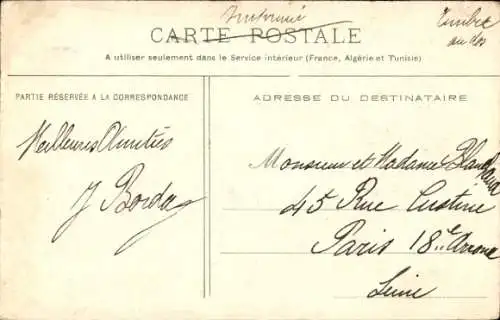 Imprimé
Timbre
au dos
CARTE POSTALE
A utiliser seulement dans le Service intérieur (France, Algérie et Tunisie)
PARTIE RÉSERVÉE A LA CORRESPONDANCE
ADRESSE DU DESTINATAIRE
Meilleures Amitiés
J Borda
Monsieur et Madame
45 Rue Custine
Paris 18e Arrond
Seine